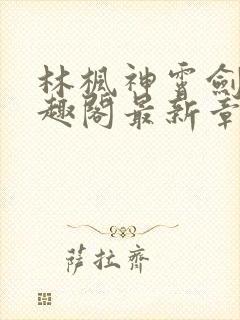 林楓神霄劍
趣閣最新章
薩拉齊